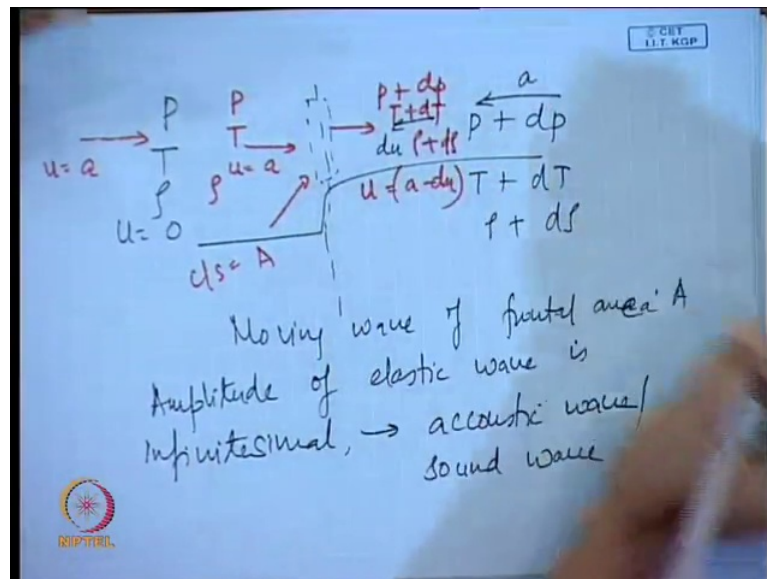 © CET
I.I.T. KGP
P P p + dp a
T T T + dT p + dp
u = a ρ ρ u = a du ρ + dρ
u = 0 u = (a - du) T + dT
c/s = A ρ + dρ
Moving wave of frontal area A
Amplitude of elastic wave is
infinitesimal, → accoustic wave/
sound wave
NPTEL